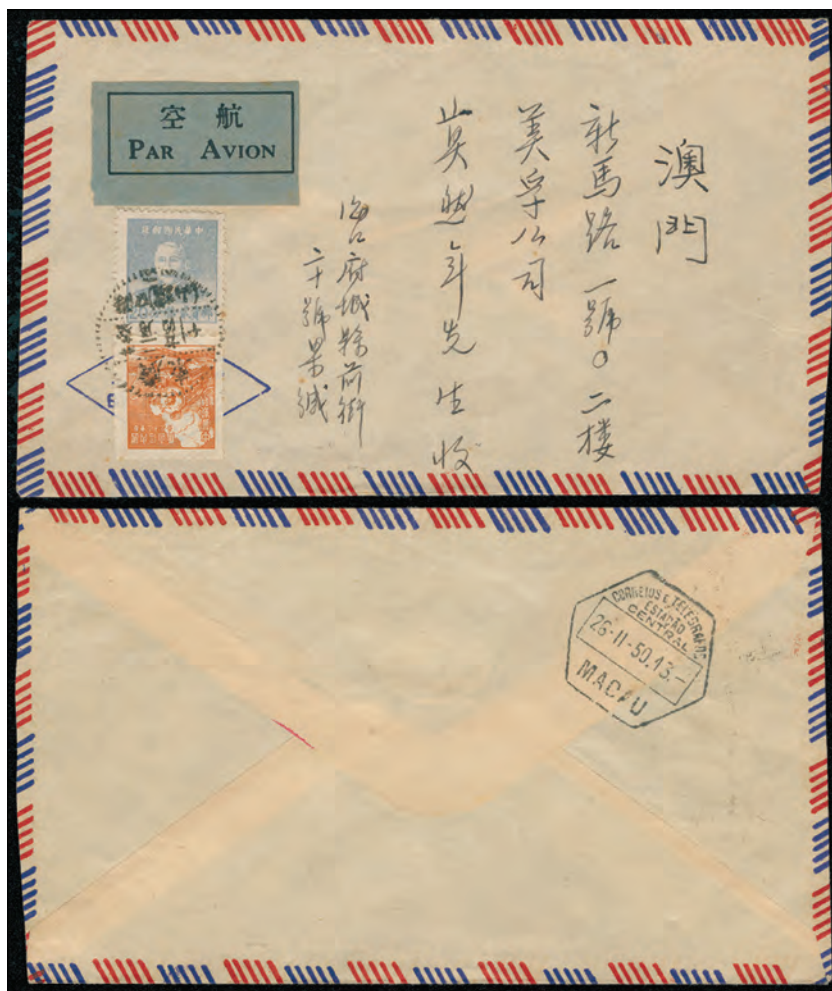 航空
PAR AVION
澳門
新馬路一號〇二樓
美孚公司
吳
年先生收
海口府城縣前街
二十號吳緘
中華民國郵政
CORREIOS E TELEGRAFOS
ESTAÇÃO
CENTRAL
26-II-50.13.-
MACAU